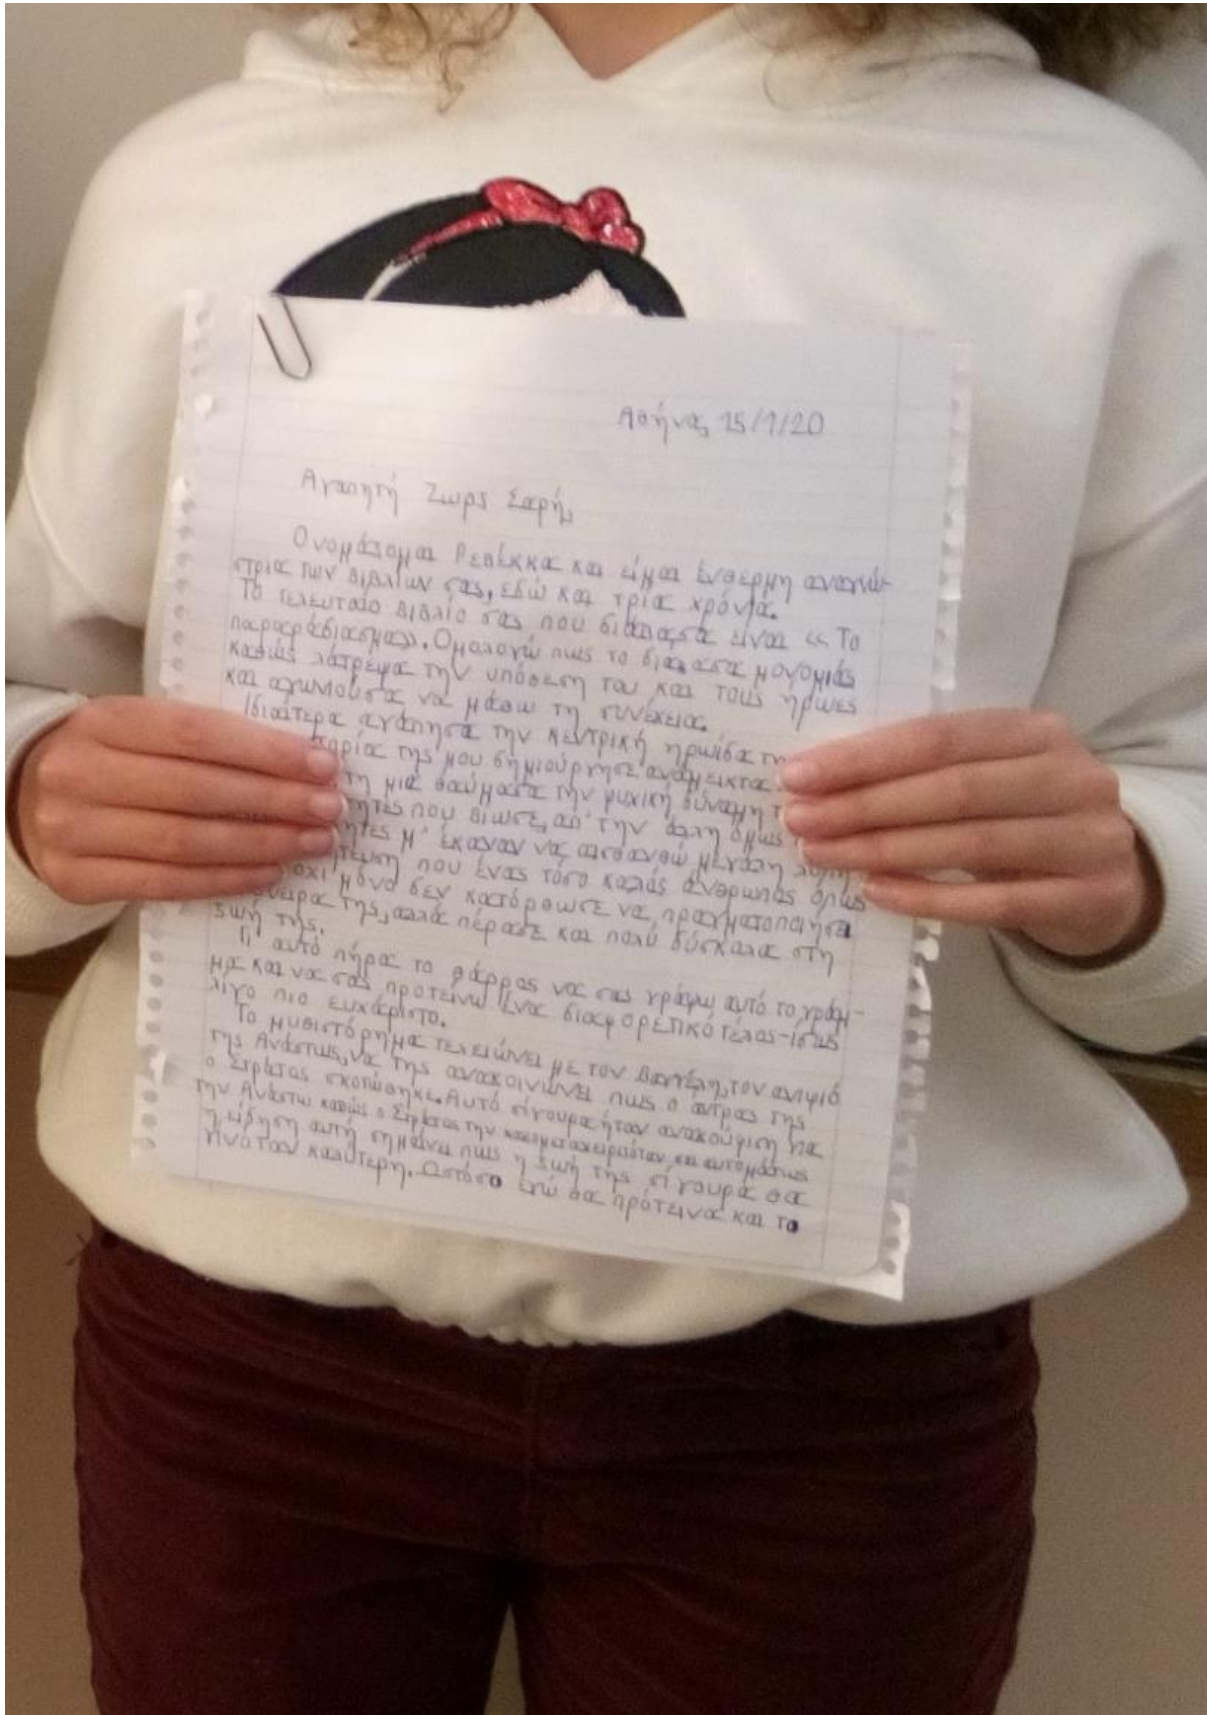 Αθήνα, 15/1/20
Αγαπητή Ζωρζ Σαρή,
Ονομάζομαι Ρεβέκκα και είμαι ένθερμη αναγνώ-
στρια των βιβλίων σας, εδώ και τρία χρόνια.
Το τελευταίο βιβλίο σας που διάβασα είναι «Το
παραράδιασμα». Ομολογώ πως το διάβασα μονομιάς
καθώς λάτρεψα την υπόθεση του και τους ήρωες
και αγωνιούσα να μάθω τη συνέχεια.
Ιδιαίτερα αγάπησα την κεντρική ηρωίδα
της μου δημιούργησε ανάμεικτα
τη μια θαύμασα την ψυχική δύναμη
που βίωσε, απ' την άλλη όμως
μ' έκαναν να αισθανθώ μεγάλη λύπη
που ένας τόσο καλός άνθρωπος όπως
όχι μόνο δεν κατόρθωσε να πραγματοποιήσει
της, αλλά πέρασε και πολύ δύσκολα στη
ζωή της.
Γι' αυτό πήρα το θάρρος να σας γράψω αυτό το γράμ-
μα και να σας προτείνω ένα διαφορετικό τέλος-ίσως
λίγο πιο ευχάριστο.
Το μυθιστόρημα τελειώνει με τον Βαγγέλη, τον ανιψιό
της Ανάστως, να της ανακοινώνει πως ο άντρας της
ο Στράτος σκοτώθηκε. Αυτό σίγουρα ήταν ανακούφιση για
την Ανάστω καθώς ο Στράτος την κακομεταχειριζόταν και αυτομάτως
η είδηση αυτή σημαίνει πως η ζωή της σίγουρα θα
γινόταν καλύτερη. Ωστόσο εγώ θα πρότεινα και το